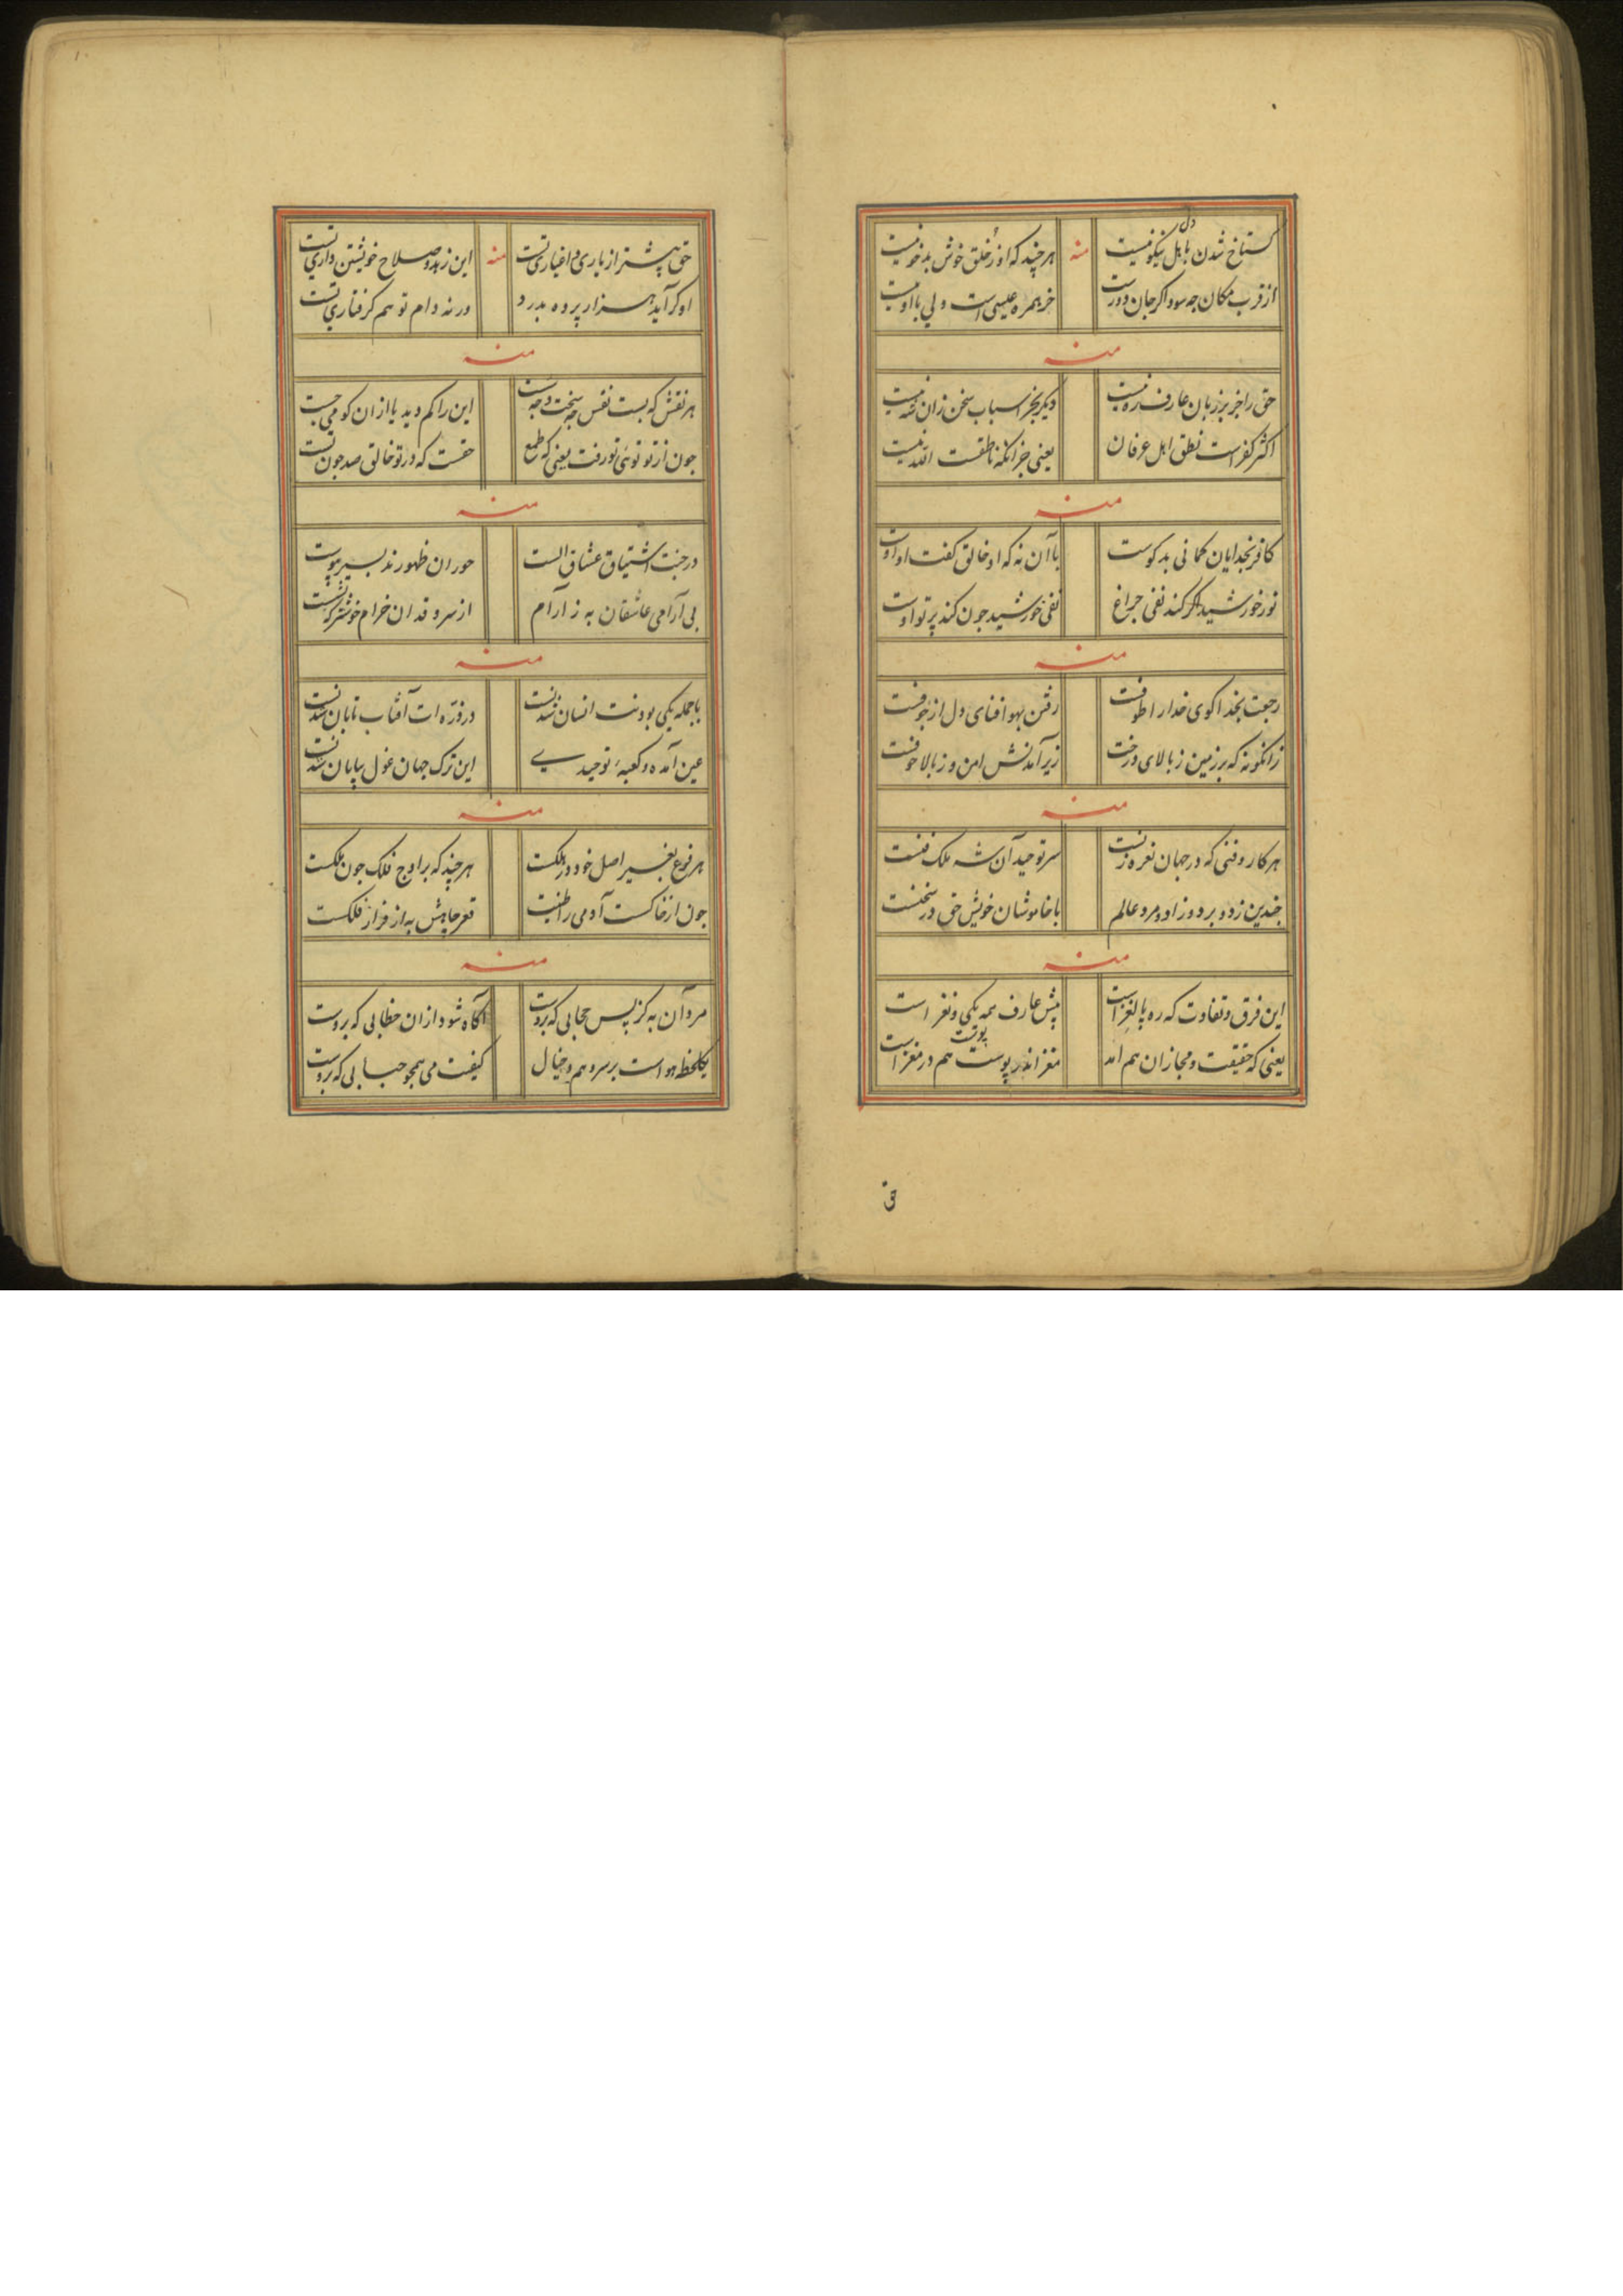 کستاخ شدن باهل دل نیکو نیست منه هرچند که او ز خلق خوش بدخو نیست
از قرب مکان چه سود اکر جان دورست خر همره عیسی است ولی با او نیست
منه
حق را جز بر زبان عارف ره نیست دیکر بجز اسباب سخن زان شه نیست
اکثر کفر است نطق اهل عرفان یعنی جز انکه ناطقست الله نیست
منه
کافر بخدایان کمانی بد کوست با آن نه که او خالق کفت او اوست
نور خورشید اکر کند نفی چراغ نفی خورشید چون کند پرتو اوست
منه
رجعت بخدا کوی خدا را رفتن بهوا فنای دل از
زانکونه که بر زمین ز بالای درخت زیر آمدنش امن و ز بالا خوفست
منه
هر کار و فنی که در جهان نعره زنست سر توحید آن شه ملک فنست
چندین زد و برد و زاد و مرد عالم با خاموشان خویش حق در سخنست
منه
این فرق و تفاوت که ره پا لغز است پیش عارف همه یکی و نغز است
یعنی که حقیقت و مجاز ان هم اند مغز اندر پوست پوست هم در مغز است
حق
حق پیشتر از یاری و اغیاری تست منه این زهد و صلاح خویشتن داری تست
او کر آید هزار پرده بدرد ورنه دام تو هم کرفتاری تست
منه
هر نقش که بست نفس چه سخت و چه سست این را کم دید یا از ان کو می جست
چون از تو توئی تو رفت یعنی که طمع حقست که در تو خالق صد چون تست
منه
در جنت اشتیاق عشاق الست حوران ظهورند بسیر پیوست
بی آرامی عاشقان به ز آرام از سرو قدان خرام خوشتر ز نشست
منه
با جمله یکی بودنت انسان شدنست در ذره ات آفتاب تابان شدنست
عین آمده و کعبهٔ توحید این ترک جهان غول بیابان شدنست
منه
هر فرع بغیر اصل خود در هلکست هرچند که بر اوج فلک چون ملکست
چون از خاکست آدمی را طینت قعر چاهش به از فراز فلکست
منه
مرد آن به کز پس حجابی که بروست آکاه شود از ان خطابی که بروست
یکلحظه هو است بر سر وهم و خیال کیفت می همچو حبابی که بروست